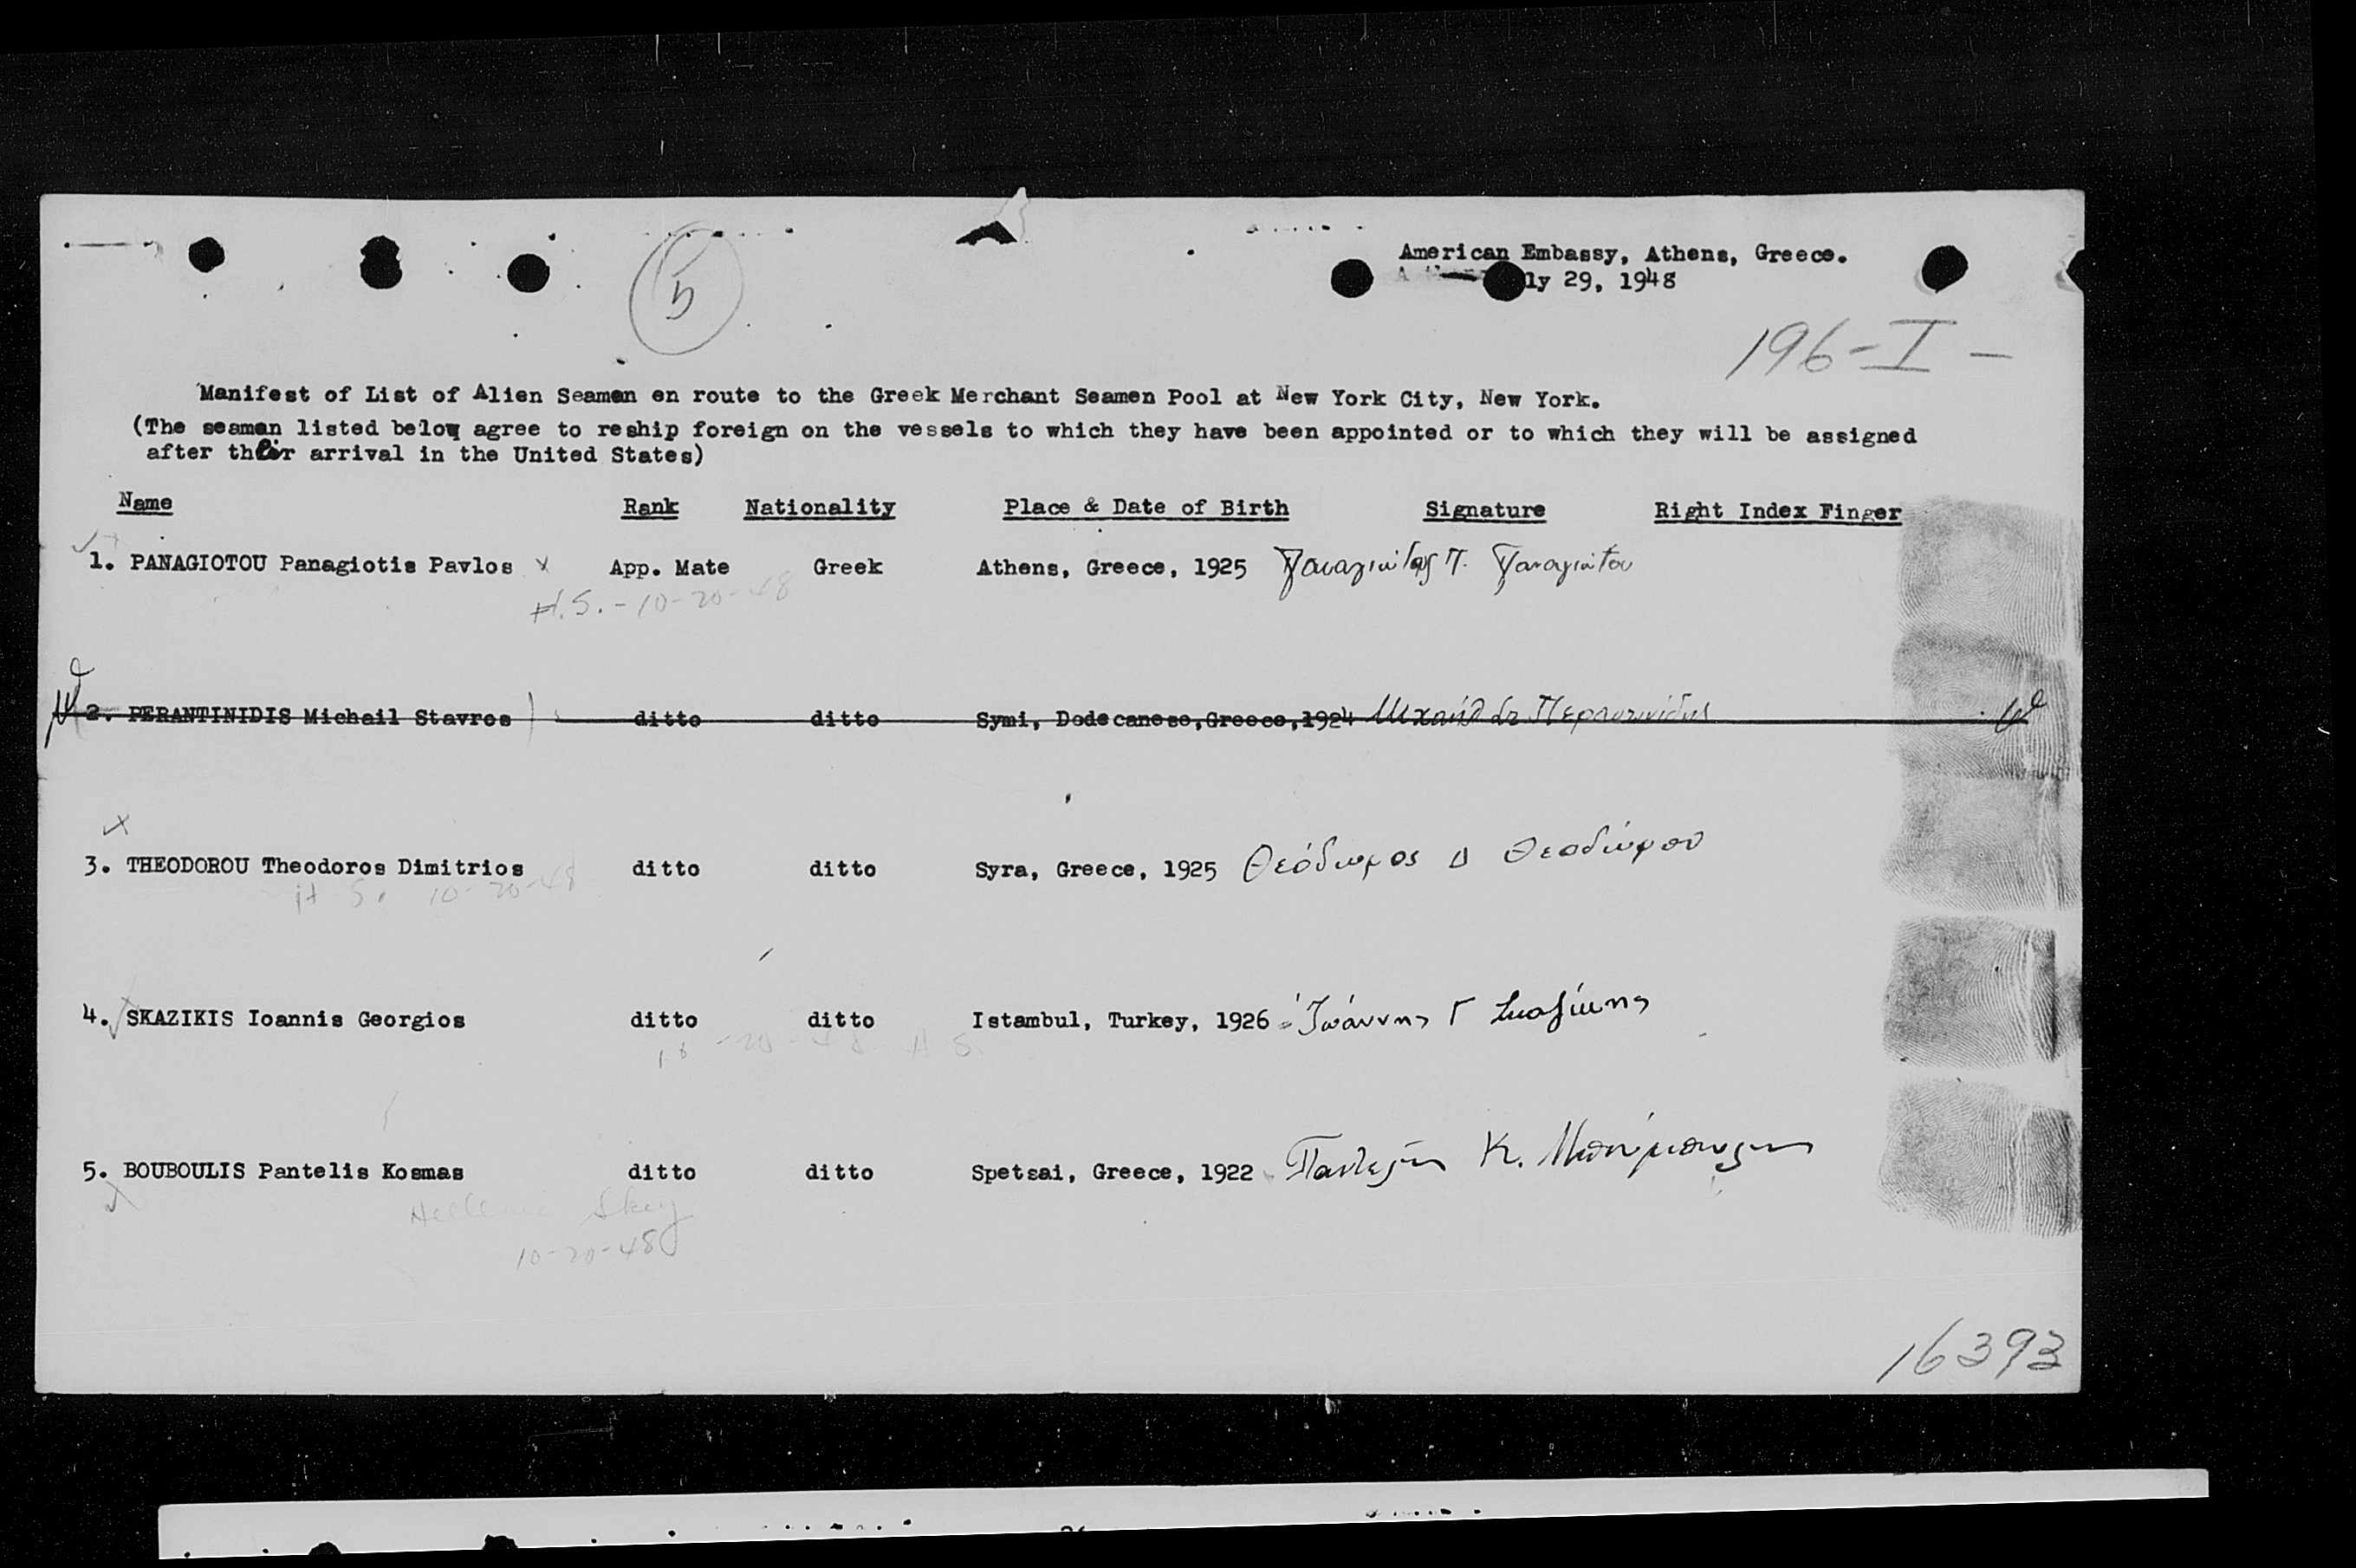 5
American Embassy, Athens, Greece.
ly 29, 1948
196-I-
Manifest of List of Alien Seamen en route to the Greek Merchant Seamen Pool at New York City, New York.
(The seamen listed below agree to reship foreign on the vessels to which they have been appointed or to which they will be assigned
after their arrival in the United States)
Name Rank Nationality Place & Date of Birth Signature Right Index Finger
1. PANAGIOTOU Panagiotis Pavlos x App. Mate Greek Athens, Greece, 1925 Παναγιώτης Π. Παναγιώτου
H.S.-10-20-48
2. PERANTINIDIS Michail Stavros ditto ditto Symi, Dodecanese,Greece,1924 Μιχαήλ Στ. Περαντινίδης
3. THEODOROU Theodoros Dimitrios ditto ditto Syra, Greece, 1925 Θεόδωρος Δ Θεοδώρου
H S. 10-20-48
4. SKAZIKIS Ioannis Georgios ditto ditto Istambul, Turkey, 1926 Ἰωάννης Γ Σκαζίκης
10-20-48 H S.
5. BOUBOULIS Pantelis Kosmas ditto ditto Spetsai, Greece, 1922 Παντελῆς Κ. Μπούμπουλης
Hellenic Sky
10-20-48
16393